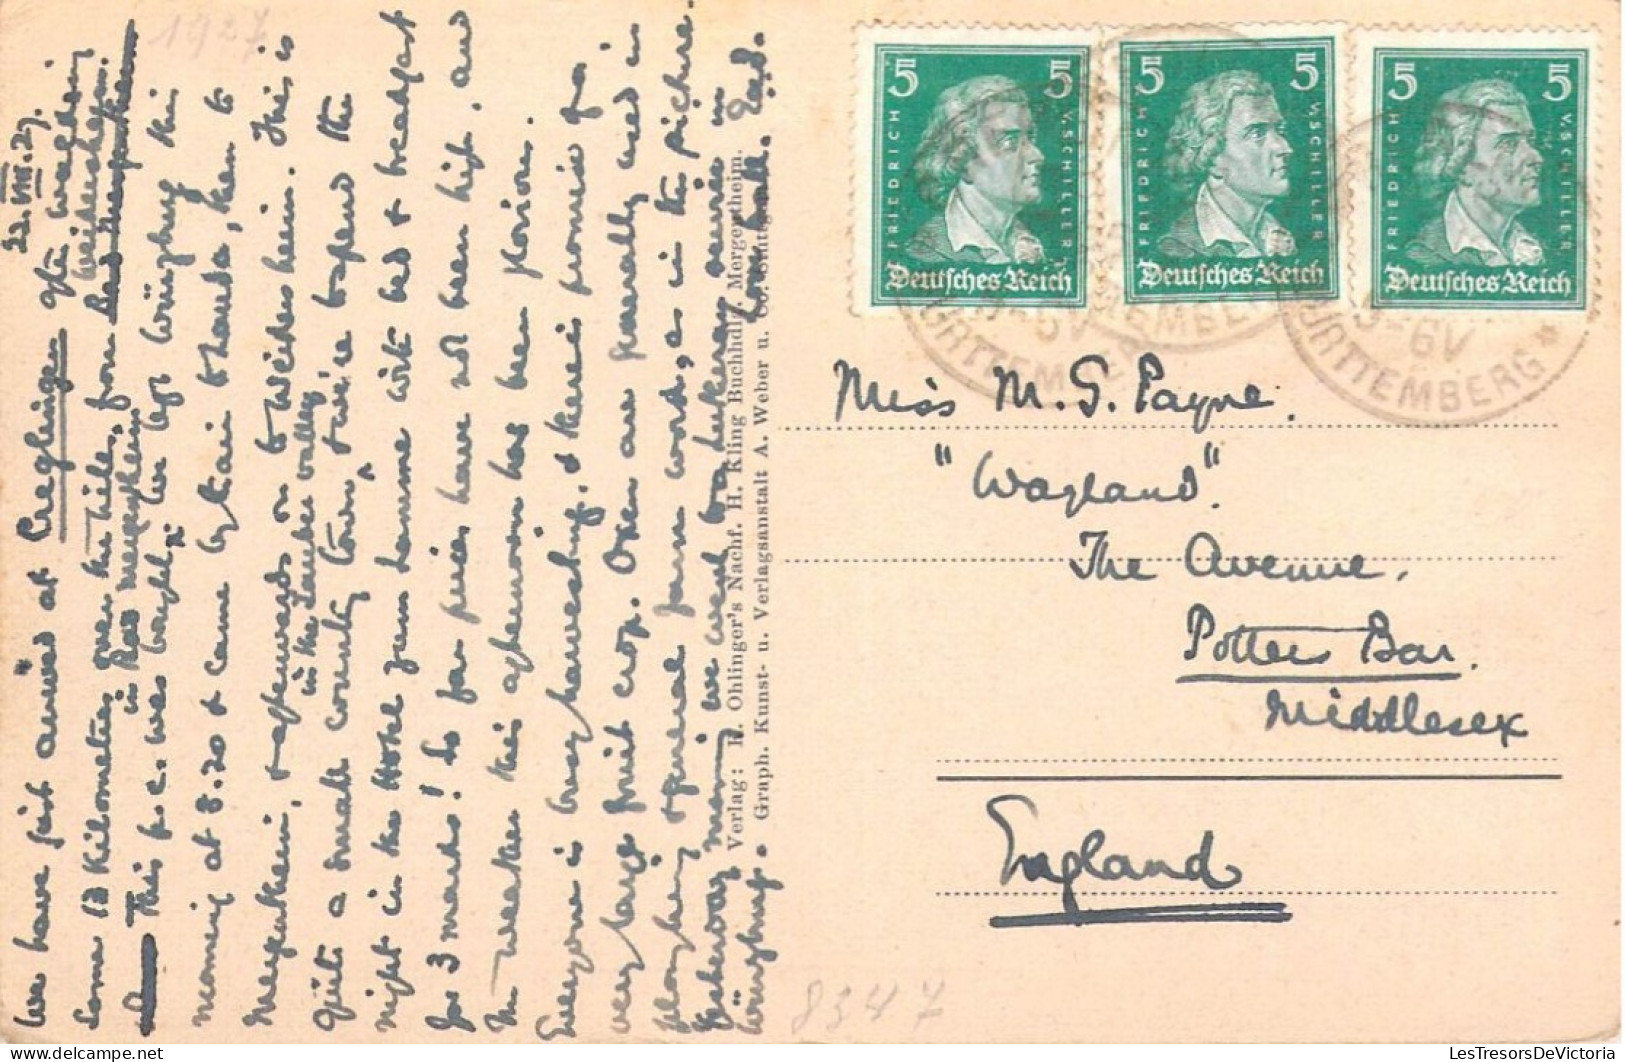 1927
22.VIII.27.
We have just arrived at Creglingen after walking
some 18 kilometres over the hills, from Weikersheim.
This p.c. was bought in Bad Mergentheim
We left Würzburg this
morning at 8.20 & came by train to Lauda, then to
Mergentheim, & afterwards on to Weikersheim. This is
quite a small country town, in the Tauber valley
twice beyond the
night in the Hotel zum Lamm with bed & breakfast
for 3 marks! So far prices have not been high, and
the weather this afternoon has been glorious.
Everyone is busy harvesting, & there's promise of a
very large fruit crop. Oxen are generally used in
ploughing & general farm work, as in the picture.
Yesterday morning we went to a Lutheran service in
Würzburg. Love to all. Dad.
Verlag: R. Ohlinger's Nachf. H. Kling Buchhdlg. Mergentheim.
Graph. Kunst- u. Verlagsanstalt A. Weber u. Co. Stuttgart
5 5
FRIEDRICH V. SCHILLER
Deutsches Reich
5 5
FRIEDRICH V. SCHILLER
Deutsches Reich
5 5
FRIEDRICH V. SCHILLER
Deutsches Reich
WÜRTTEMBERG
5-6V
WÜRTTEMBERG
Miss M. S. Payne.
"Wayland".
The Avenue.
Potters Bar.
Middlesex
England
8347
LesTresorsDeVictoria.com